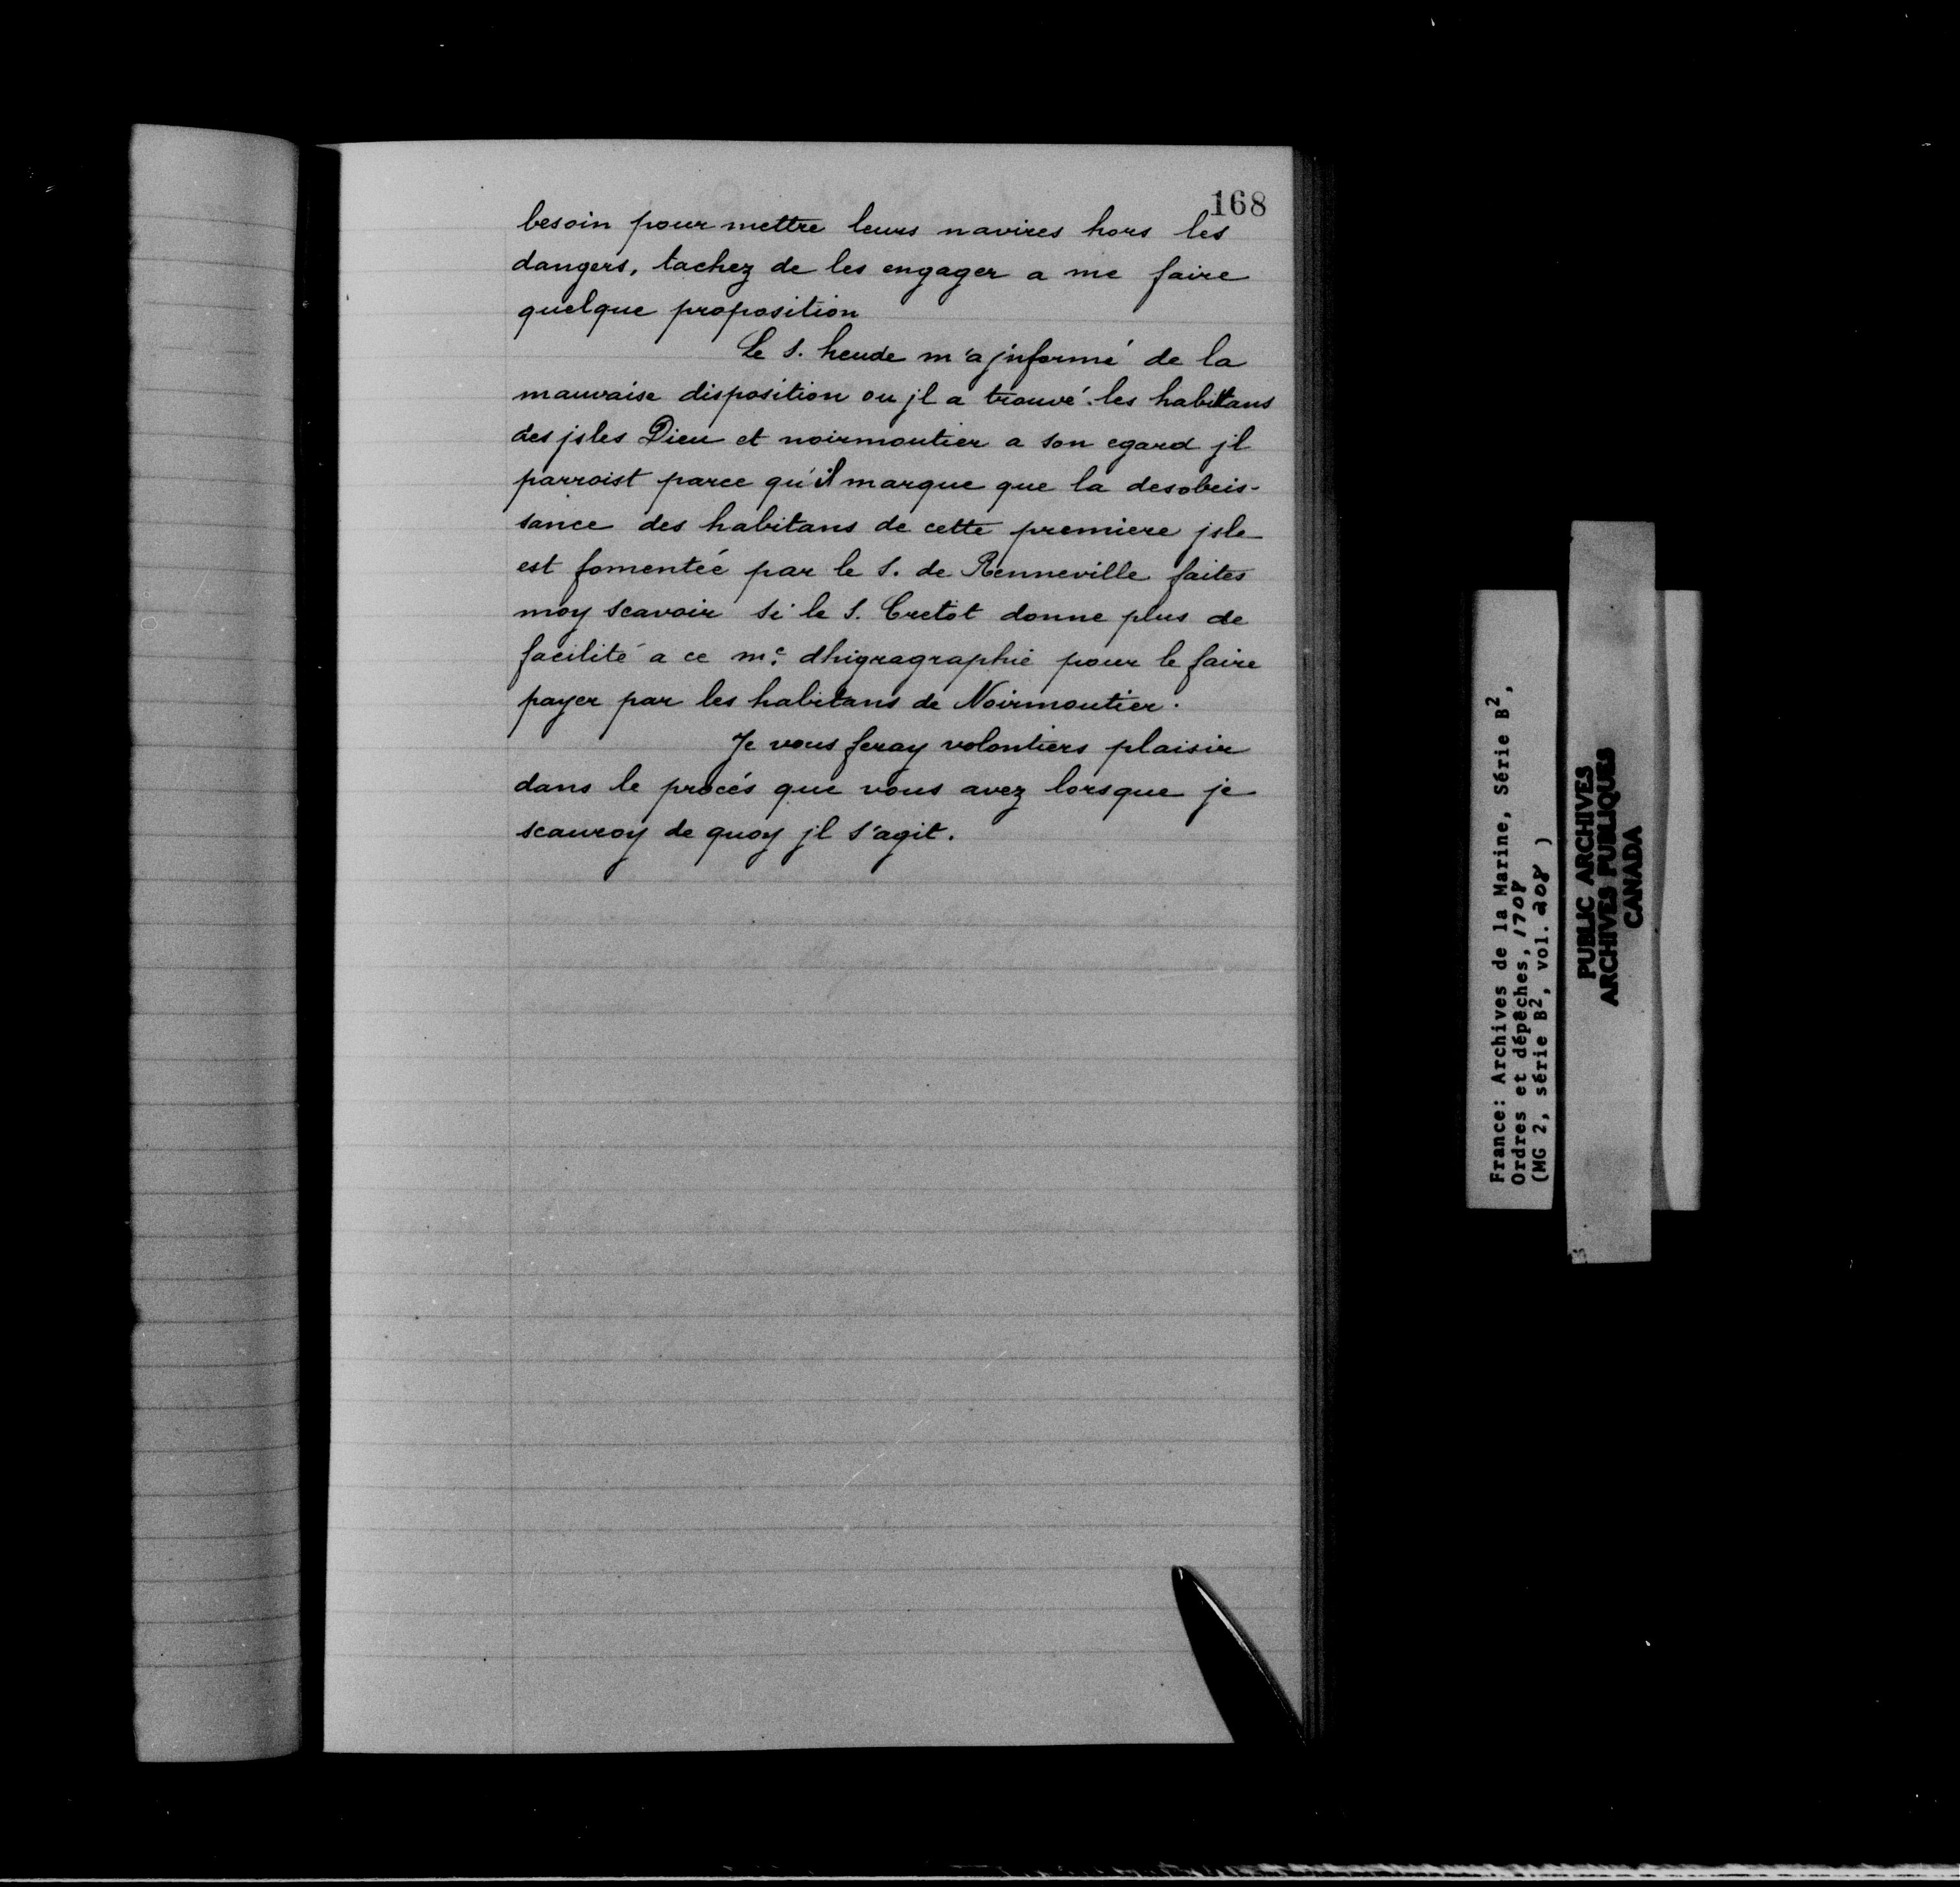 168
besoin pour mettre leurs navires hors les
dangers, tachez de les engager a me faire
quelque proposition
Le S. heude m'a jnformé de la
mauvaise disposition ou jl a trouvé les habitans
des jsles Dieu et noirmoutier a son egard jl
parroist parce qu'il marque que la desobeis-
sance des habitans de cette premiere jsle
est fomentée par le S. de Renneville faites
moy scavoir si le S. Cretot donne plus de
facilité a ce me. dhigragraphie pour le faire
payer par les habitans de Noirmoutier.
Je vous feray volontiers plaisir
dans le procés que vous avez lorsque je
scauroy de quoy jl s'agit.
France: Archives de la Marine, Série B2,
Ordres et dépêches, 1708
(MG 2, série B2, vol. 208 )
PUBLIC ARCHIVES
ARCHIVES PUBLIQUES
CANADA